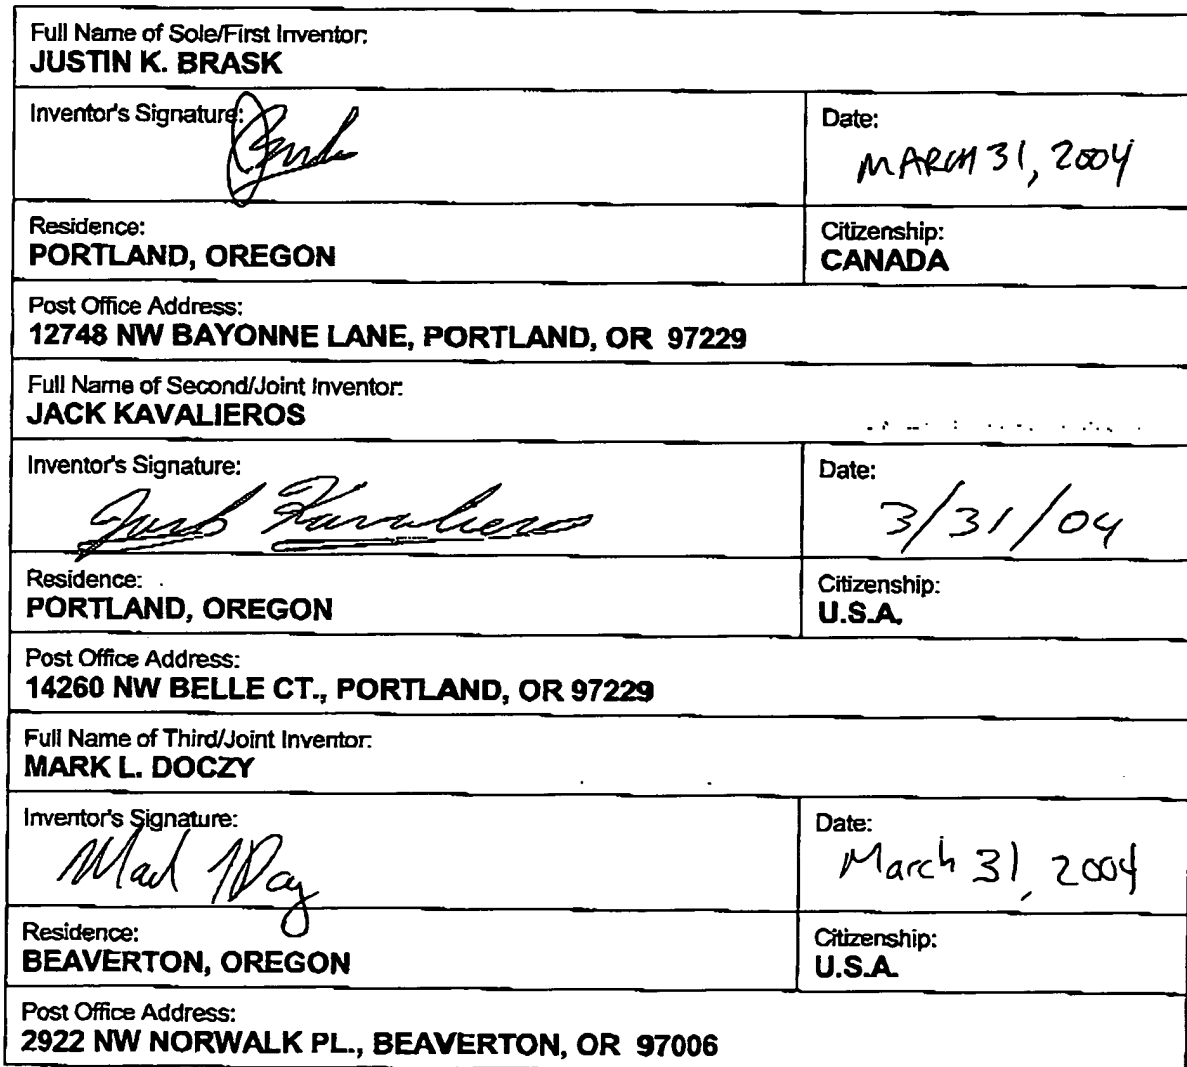 Full Name of Sole/First Inventor:
JUSTIN K. BRASK
Inventor's Signature:
Date:
MARCH 31, 2004
Residence:
PORTLAND, OREGON
Citizenship:
CANADA
Post Office Address:
12748 NW BAYONNE LANE, PORTLAND, OR 97229
Full Name of Second/Joint Inventor:
JACK KAVALIEROS
Inventor's Signature:
Jack Kavalieros
Date:
3/31/04
Residence:
PORTLAND, OREGON
Citizenship:
U.S.A.
Post Office Address:
14260 NW BELLE CT., PORTLAND, OR 97229
Full Name of Third/Joint Inventor:
MARK L. DOCZY
Inventor's Signature:
Date:
March 31, 2004
Residence:
BEAVERTON, OREGON
Citizenship:
U.S.A.
Post Office Address:
2922 NW NORWALK PL., BEAVERTON, OR 97006